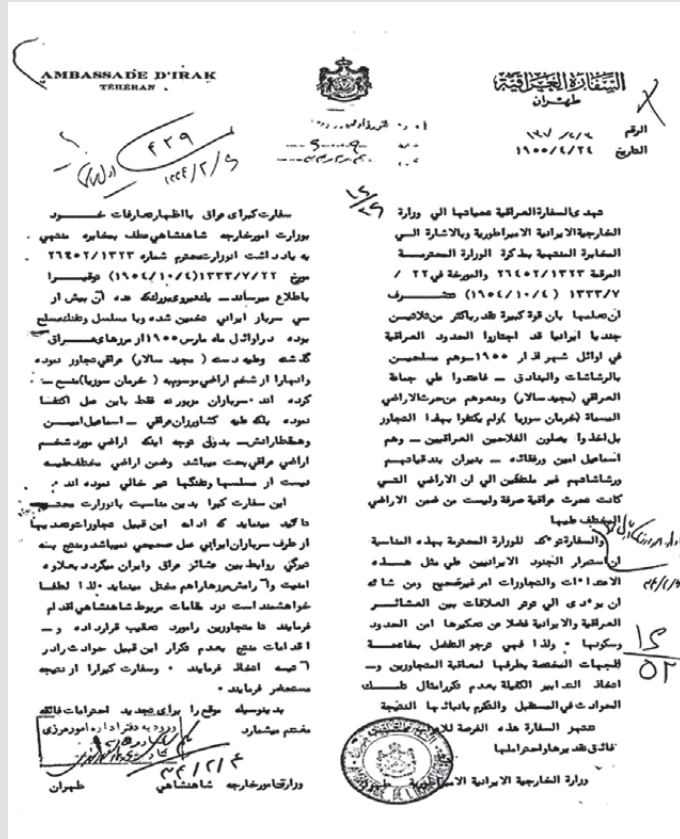 AMBASSADE D'IRAK
TÉHÉRAN
السفارة العراقية
طهران
الرقم
التاريخ ١٩٥٥/٤/٢٤
٤٢٩
تهدي السفارة العراقية تحياتها الى وزارة
الخارجية الايرانية الامبراطورية وبالاشارة الى
المخابرة المنتهية بمذكرة الوزارة المحترمة
المرقمة ٢٦٤٥٢/١٣٢٣ والمورخة في ٢٢ /
١٣٣٣/٧ (١٩٥٤/١٠/٤) تتشرف
ان تعلمها بان قوة كبيرة تقدر باكثر من ثلاثين
جنديا ايرانيا قد اجتازوا الحدود العراقية
في اوائل شهر اذار ١٩٥٥ وهم مسلحين
بالرشاشات والبنادق — فاعتدوا على جماعة
العراقي (مجيد سالار) ومنعوهم من حرث الاراضي
المسماة (خرمان سوريا) ولم يكتفوا بهذا التجاوز
بل اخذوا يصلون الفلاحين العراقيين — وهم
اسماعيل امين ورفقائه — بنيران بندقياتهم
ورشاشاتهم غير ملتفتين الى ان الاراضي التي
كانت تحرث عراقية صرفة وليست من ضمن الاراضي
المختلف عليها
والسفارة تؤكد للوزارة المحترمة بهذه المناسبة
ان استمرار الجنود الايرانيين على مثل هذه
الاعتداءات والتجاوزات امر غير صحيح ومن شأنه
ان يؤدي الى توتر العلاقات بين العشائر
العراقية والايرانية فضلا عن تعكيرها امن الحدود
وسكونها ٠ ولذا فهي ترجو التفضل بمفاتحة
الجهات المختصة بطرفها لمعاقبة المتجاوزين و—
اتخاذ التدابير الكفيلة بعدم تكرار امثال تلك
الحوادث في المستقبل والتكرم بانبائها النتيجة
تنتهز السفارة هذه الفرصة
فائق تقديرها واحترامها
وزارة الخارجية الايرانية
سفارت کبرای عراق با اظهار تعارفات خود
بوزارت امور خارجه شاهنشاهی عطف بمخابره منتهی
به یادداشت آنوزارت محترم شماره ٢٦٤٥٢/١٣٢٣
مورخ ١٣٣٣/٧/٢٢ (١٩٥٤/١٠/٤) توقیرا
باطلاع میرساند —
سی سرباز ایرانی تخمین شده وبا مسلسل وتفنگ مسلح
بوده در اوائل ماه مارس ١٩٥٥ از مرزهای عراق
گذشته وعلیه دسته (مجید سالار) عراقی تجاوز نموده
وآنهارا از شخم اراضی موسوم به (خرمان سوریا) منع —
کرده اند ٠ سربازان مزبور نه فقط باین عمل اکتفا
نموده بلکه علیه کشاورزان عراقی — اسماعیل امین
وهمقطارانش — بدون توجه اینکه اراضی مورد شخم
اراضی عراقی بحت میباشد وضمن اراضی مختلف علیه
نیست از مسلسلها وتفنگها تیر خالی نموده اند ٠
این سفارت کبرا بدین مناسبت بآنوزارت محترم
تأکید مینماید که ادامه این قبیل تجاوزات وتعدیها
از طرف سربازان ایرانی عمل صحیحی نمیباشد ومنتج به
تیرگی روابط بین عشائر عراق وایران میگردد بعلاوه
امنیت وآرامش مرزها راهم مختل مینماید ٠ لذا لطفا
خواهشمند است نزد مقامات مربوط شاهنشاهی اقدام
فرمایند تا متجاوزین را مورد تعقیب قرارداده و—
اقدامات منتج بعدم تکرار این قبیل حوادث را در
آتیه اتخاذ فرمایند ٠ وسفارت کبرا را از نتیجه
مستحضر فرمایند ٠
بدینوسیله موقع را برای تجدید احترامات فائقه
مغتنم میشمارد
ورود به دفتر اداره امور مرزی
٣٤/٢/٤
وزارت امور خارجه شاهنشاهی طهران
١٥
٥٢